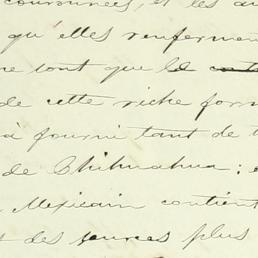 couronnées, et les au
qu'elles renfermen
ne tout que le
de cette riche form
à fourni tant de t
de Chihuahua; e
Mexicain contient
t des sources plus